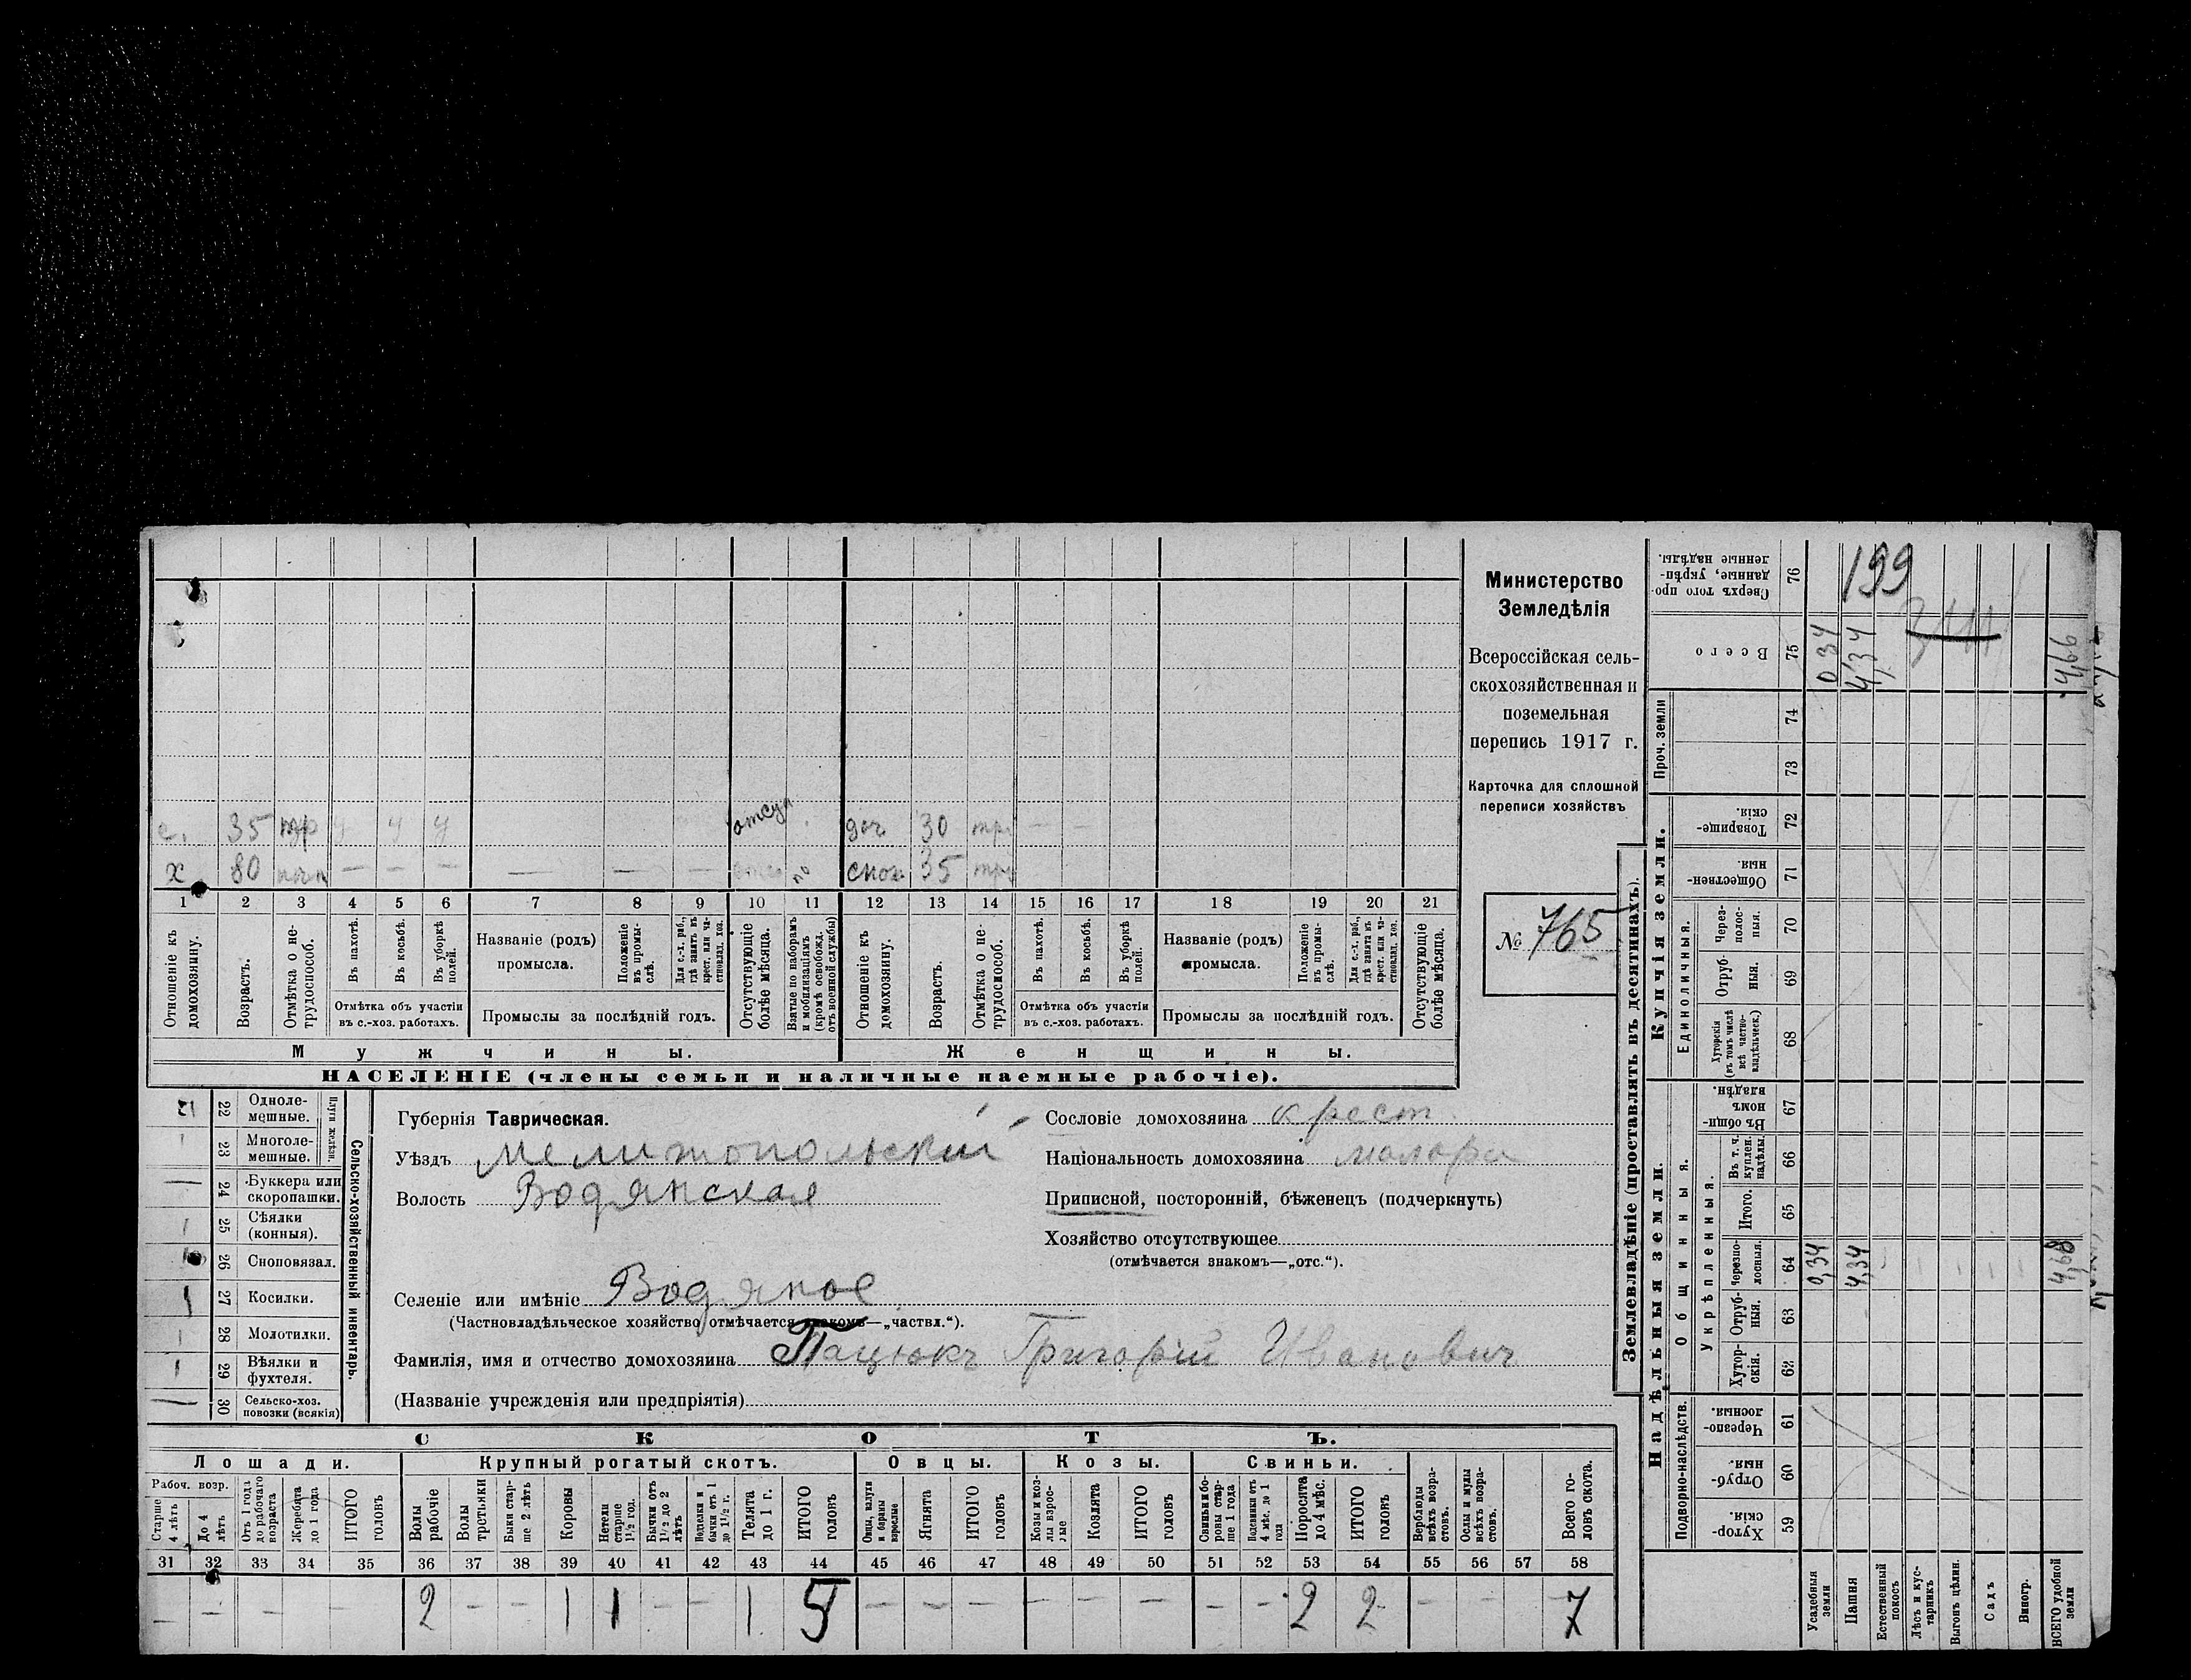 Министерство
Земледѣлія
Всероссійская сель-
скохозяйственная и
поземельная
перепись 1917 г.
Карточка для сплошной
переписи хозяйствъ
№ 765
с. 35 у у отсу доч 30 тр — —
х 80 — — — — — — по снох 35 тр
1 2 3 4 5 6 7 8 9 10 11 12 13 14 15 16 17 18 19 20 21
Отношеніе къ домохозяину.
Возрастъ.
Отмѣтка о не-трудоспособ.
Въ пахотѣ.
Въ косьбѣ.
Въ уборкѣ полей.
Отмѣтка объ участіи въ с.-хоз. работахъ.
Названіе (родъ) промысла.
Положеніе въ промы-слѣ.
Для с.-х. раб., гдѣ занятъ въ крест. или ча-стновлад. хоз.
Промыслы за послѣдній годъ.
Отсутствующіе болѣе мѣсяца.
Взятые по наборамъ и мобилизаціямъ (кромѣ освобожд. отъ военной службы)
Отношеніе къ домохозяину.
Возрастъ.
Отмѣтка о не-трудоспособ.
Въ пахотѣ.
Въ косьбѣ.
Въ уборкѣ полей.
Отмѣтка объ участіи въ с.-хоз. работахъ.
Названіе (родъ) промысла.
Положеніе въ промы-слѣ.
Для с.-х. раб., гдѣ занята въ крест. или ча-стновлад. хоз.
Промыслы за послѣдній годъ.
Отсутствующіе болѣе мѣсяца.
Мужчины. Женщины.
НАСЕЛЕНІЕ (члены семьи и наличные наемные рабочіе).
Сельско-хозяйственный инвентарь.
Плуги желѣзн.
22 Одноле-мешные.
23 Многоле-мешные.
24 Буккера или скоропашки.
25 Сѣялки (конныя).
26 Сноповязал.
27 Косилки.
28 Молотилки.
29 Вѣялки и фухтеля.
30 Сельско-хоз. повозки (всякія)
Губернія Таврическая.
Уѣздъ Мелитопольскій
Волость Водянская
Сословіе домохозяина крест
Національность домохозяина малоро
Приписной, посторонній, бѣженецъ (подчеркнуть)
Хозяйство отсутствующее
(отмѣчается знакомъ—„отс.“).
Селеніе или имѣніе Водяное
(Частновладѣльческое хозяйство отмѣчается знакомъ—„частвл.“).
Фамилія, имя и отчество домохозяина Пацюкъ Григорій Иванович
(Названіе учрежденія или предпріятія)
СКОТЪ.
Лошади. Крупный рогатый скотъ. Овцы. Козы. Свиньи.
Рабоч. возр.
Старше 4 лѣтъ
До 4 лѣтъ
Отъ 1 года до рабочаго возраста
Жеребята до 1 года
ИТОГО головъ
Волы рабочіе
Волы третьяки
Быки стар-ше 2 лѣтъ
Коровы
Нетели старше 1½ год.
Бычки отъ 1½ до 2 лѣтъ
Подтелки и бычки отъ 1 до 1½ г.
Телята до 1 г.
ИТОГО головъ
Овцы, валухи и бараны взрослые
Ягнята
ИТОГО головъ
Козы и коз-лы взрос-лые
Козлята
ИТОГО головъ
Свиньи и бо-ровы стар-ше 1 года
Подсвинки отъ 4 мѣс. до 1 года
Поросята до 4 мѣс.
ИТОГО головъ
Верблюды всѣхъ возра-стовъ.
Ослы и мулы всѣхъ возра-стовъ.
Всего го-ловъ скота.
31 32 33 34 35 36 37 38 39 40 41 42 43 44 45 46 47 48 49 50 51 52 53 54 55 56 57 58
— — — — 2 — — 1 1 — — 1 5 — — — — — — — — 2 2 — — 7
Землевладѣніе (проставлять въ десятинахъ).
Надѣльныя земли.
Купчія земли.
Проч. земли
Подворно-наслѣдств.
Общинныя.
Укрѣпленныя.
Единоличныя.
Хутор-скія. 59
Отруб-ныя. 60
Черезпо-лосныя. 61
Хутор-скія. 62
Отруб-ныя. 63
Черезпо-лосныя. 64
Итого. 65
Въ т. ч. куплен. надѣлы. 66
Въ общи-номъ владѣн. 67
Хуторскія (въ томъ числѣ всѣ частно-владѣльческ.) 68
Отруб-ныя. 69
Через-полос-ныя. 70
Обществен-ныя. 71
Товарище-скія. 72
73
74
Всего 75
Сверхъ того про-данные, укрѣп-ленные надѣлы. 76
Усадебныя земли
Пашня
Естественный покосъ
Лѣсъ и кус-тарникъ
Выгонъ цѣлин.
Садъ
Виногр.
ВСЕГО удобной земли
0,34 4,34 4,68
0 34 4,34 4,66
199